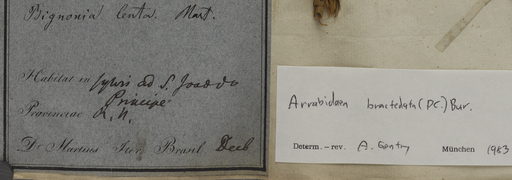 Bignonia lenta. Mart.
Habitat in sylvis ad S. Joao do
Principe
Provinciae R. n.
Dr Martius Iter Brasil Decb
Arrabidaea bracteata (DC.) Bur.
Determ. – rev. A. Gentry München 1983